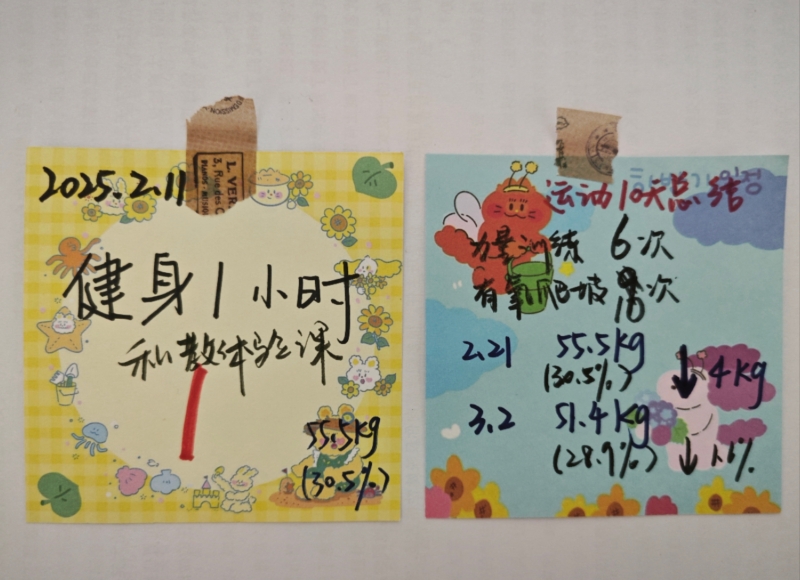 2025.2.11
健身1小时
私教体验课
1
55.5kg
(30.5%)
运动10天总结
力量训练 6次
有氧爬坡 10次
2.21 55.5kg
(30.5%)
↓4kg
3.2 51.4kg
(28.9%) ↓1.1%
L. VER
3, Rue des C